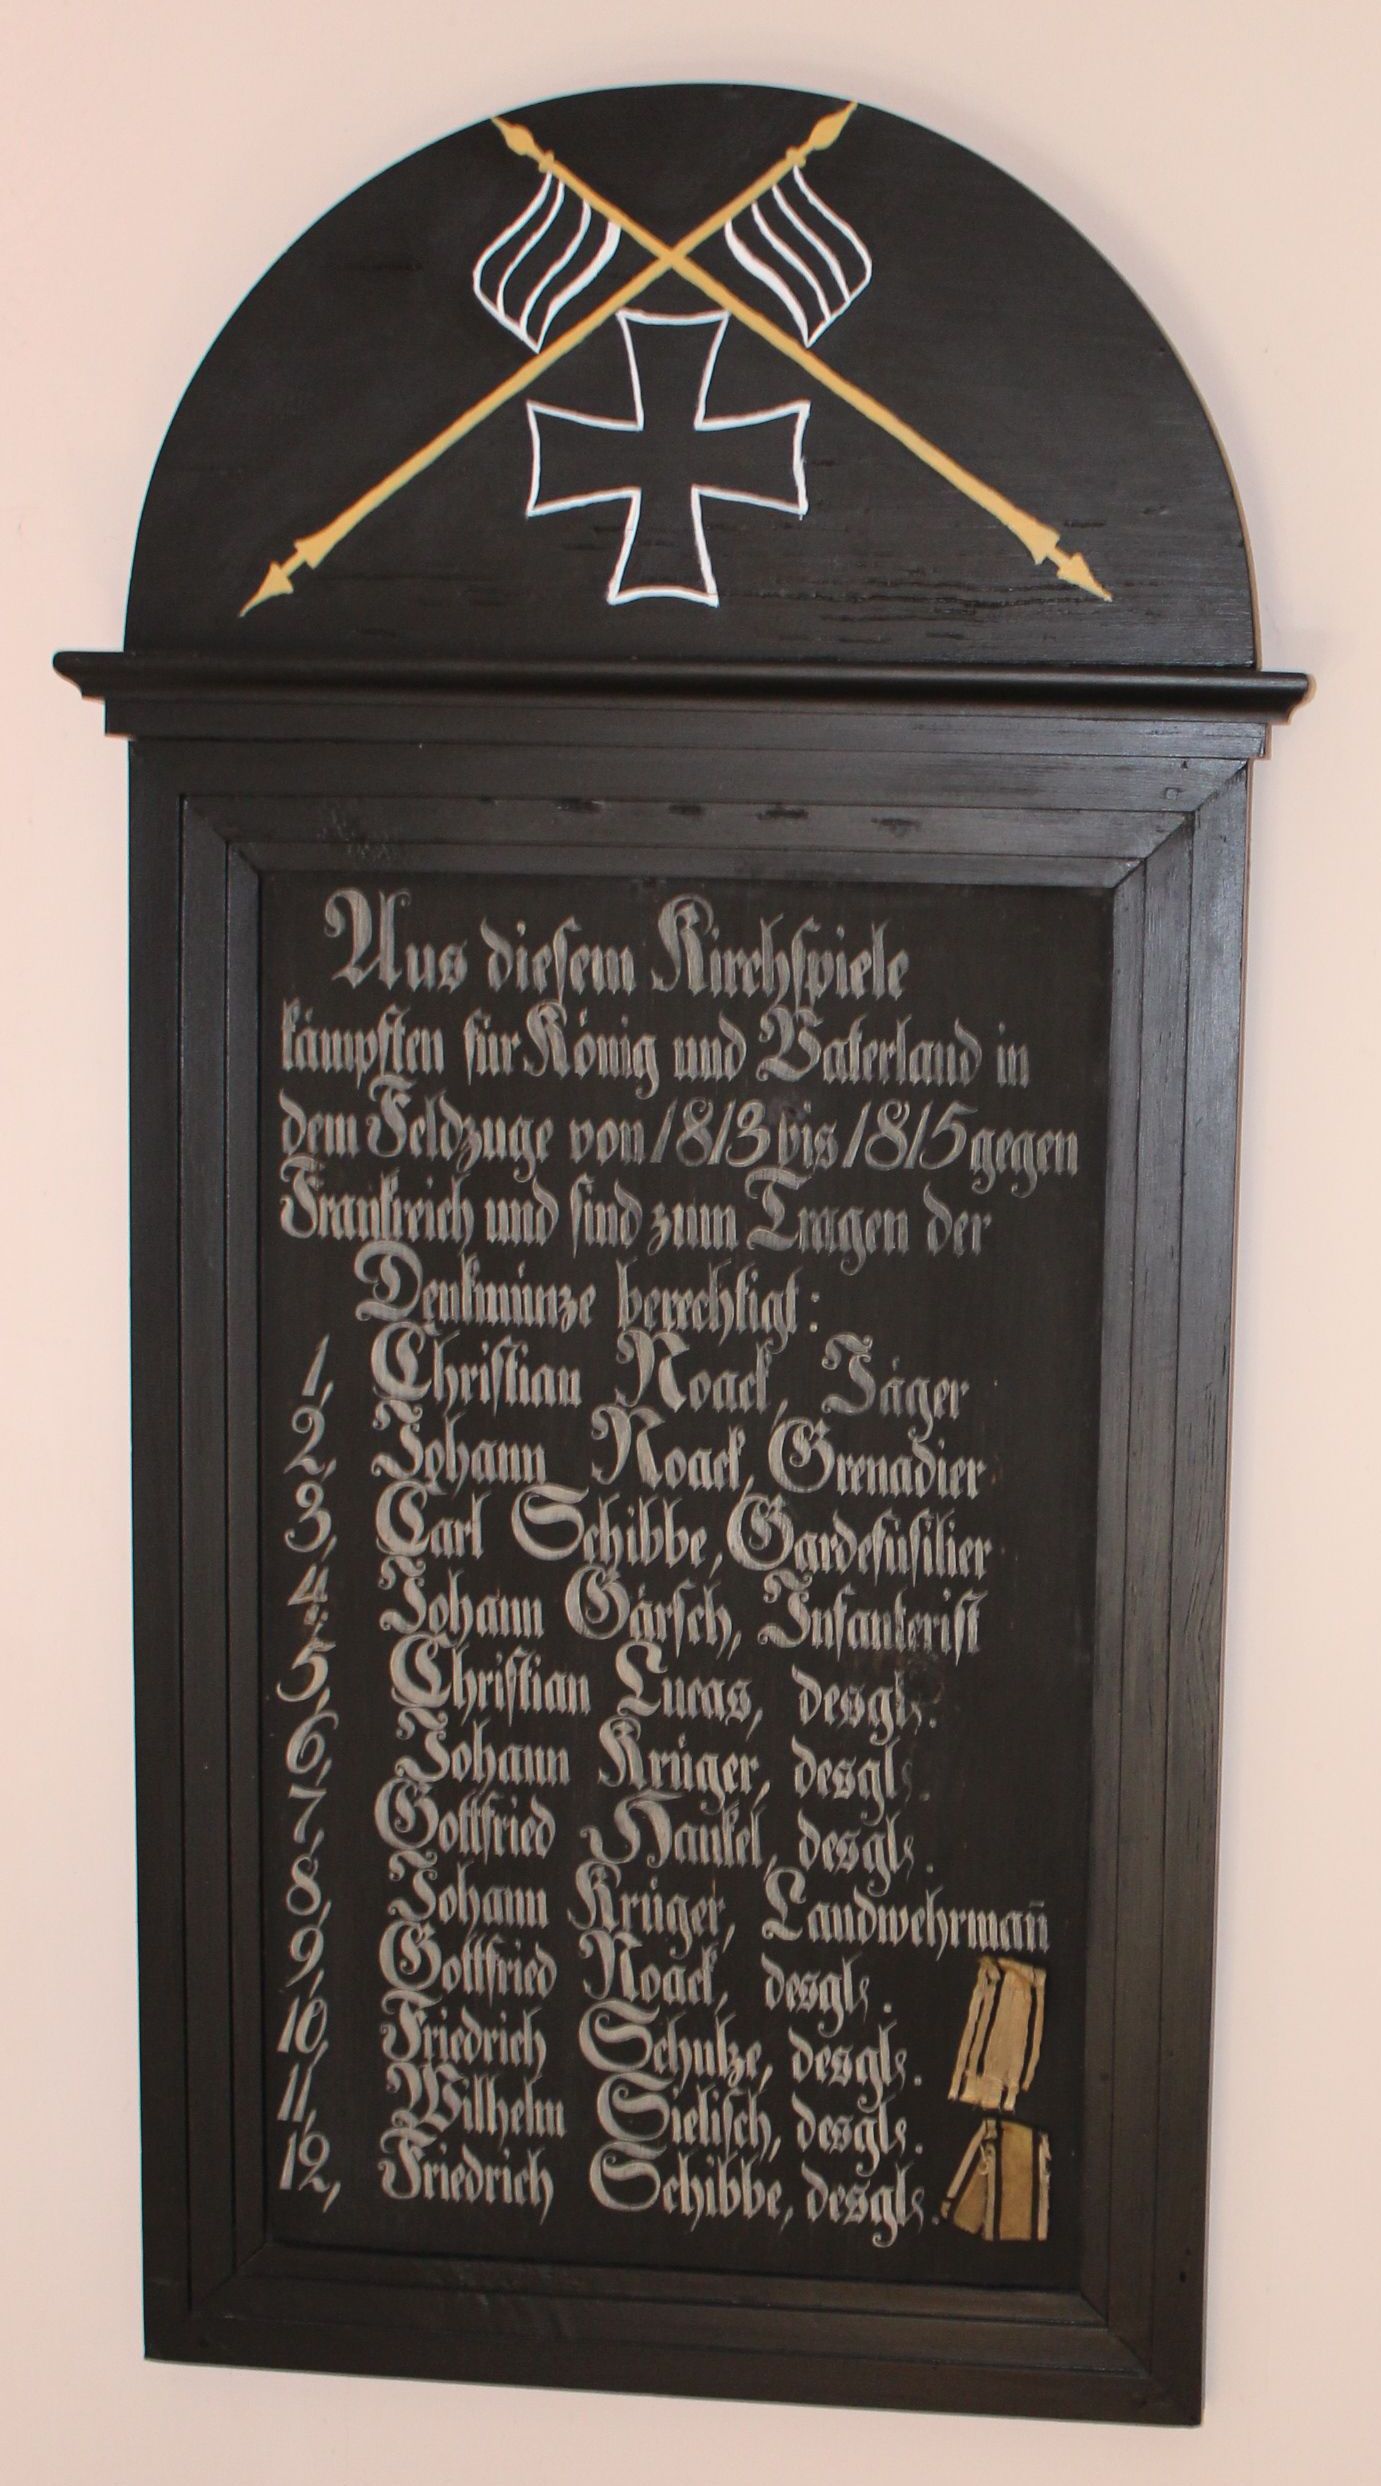 Aus diesem Kirchspiele
kämpften für König und Vaterland in
dem Feldzuge von 1813 bis 1815 gegen
Frankreich und sind zum Tragen der
Denkmünze berechtigt:
1, Christian Noack, Jäger
2, Johann Noack, Grenadier
3, Carl Schibbe, Gardefüsilier
4, Johann Gärsch, Infanterist
5, Christian Lucas, desgl.
6, Johann Krüger, desgl.
7, Gottfried Hankel, desgl.
8, Johann Krüger, Landwehrman̄
9, Gottfried Noack, desgl.
10, Friedrich Schulze, desgl.
11, Wilhelm Sielisch, desgl.
12, Friedrich Schibbe, desgl.